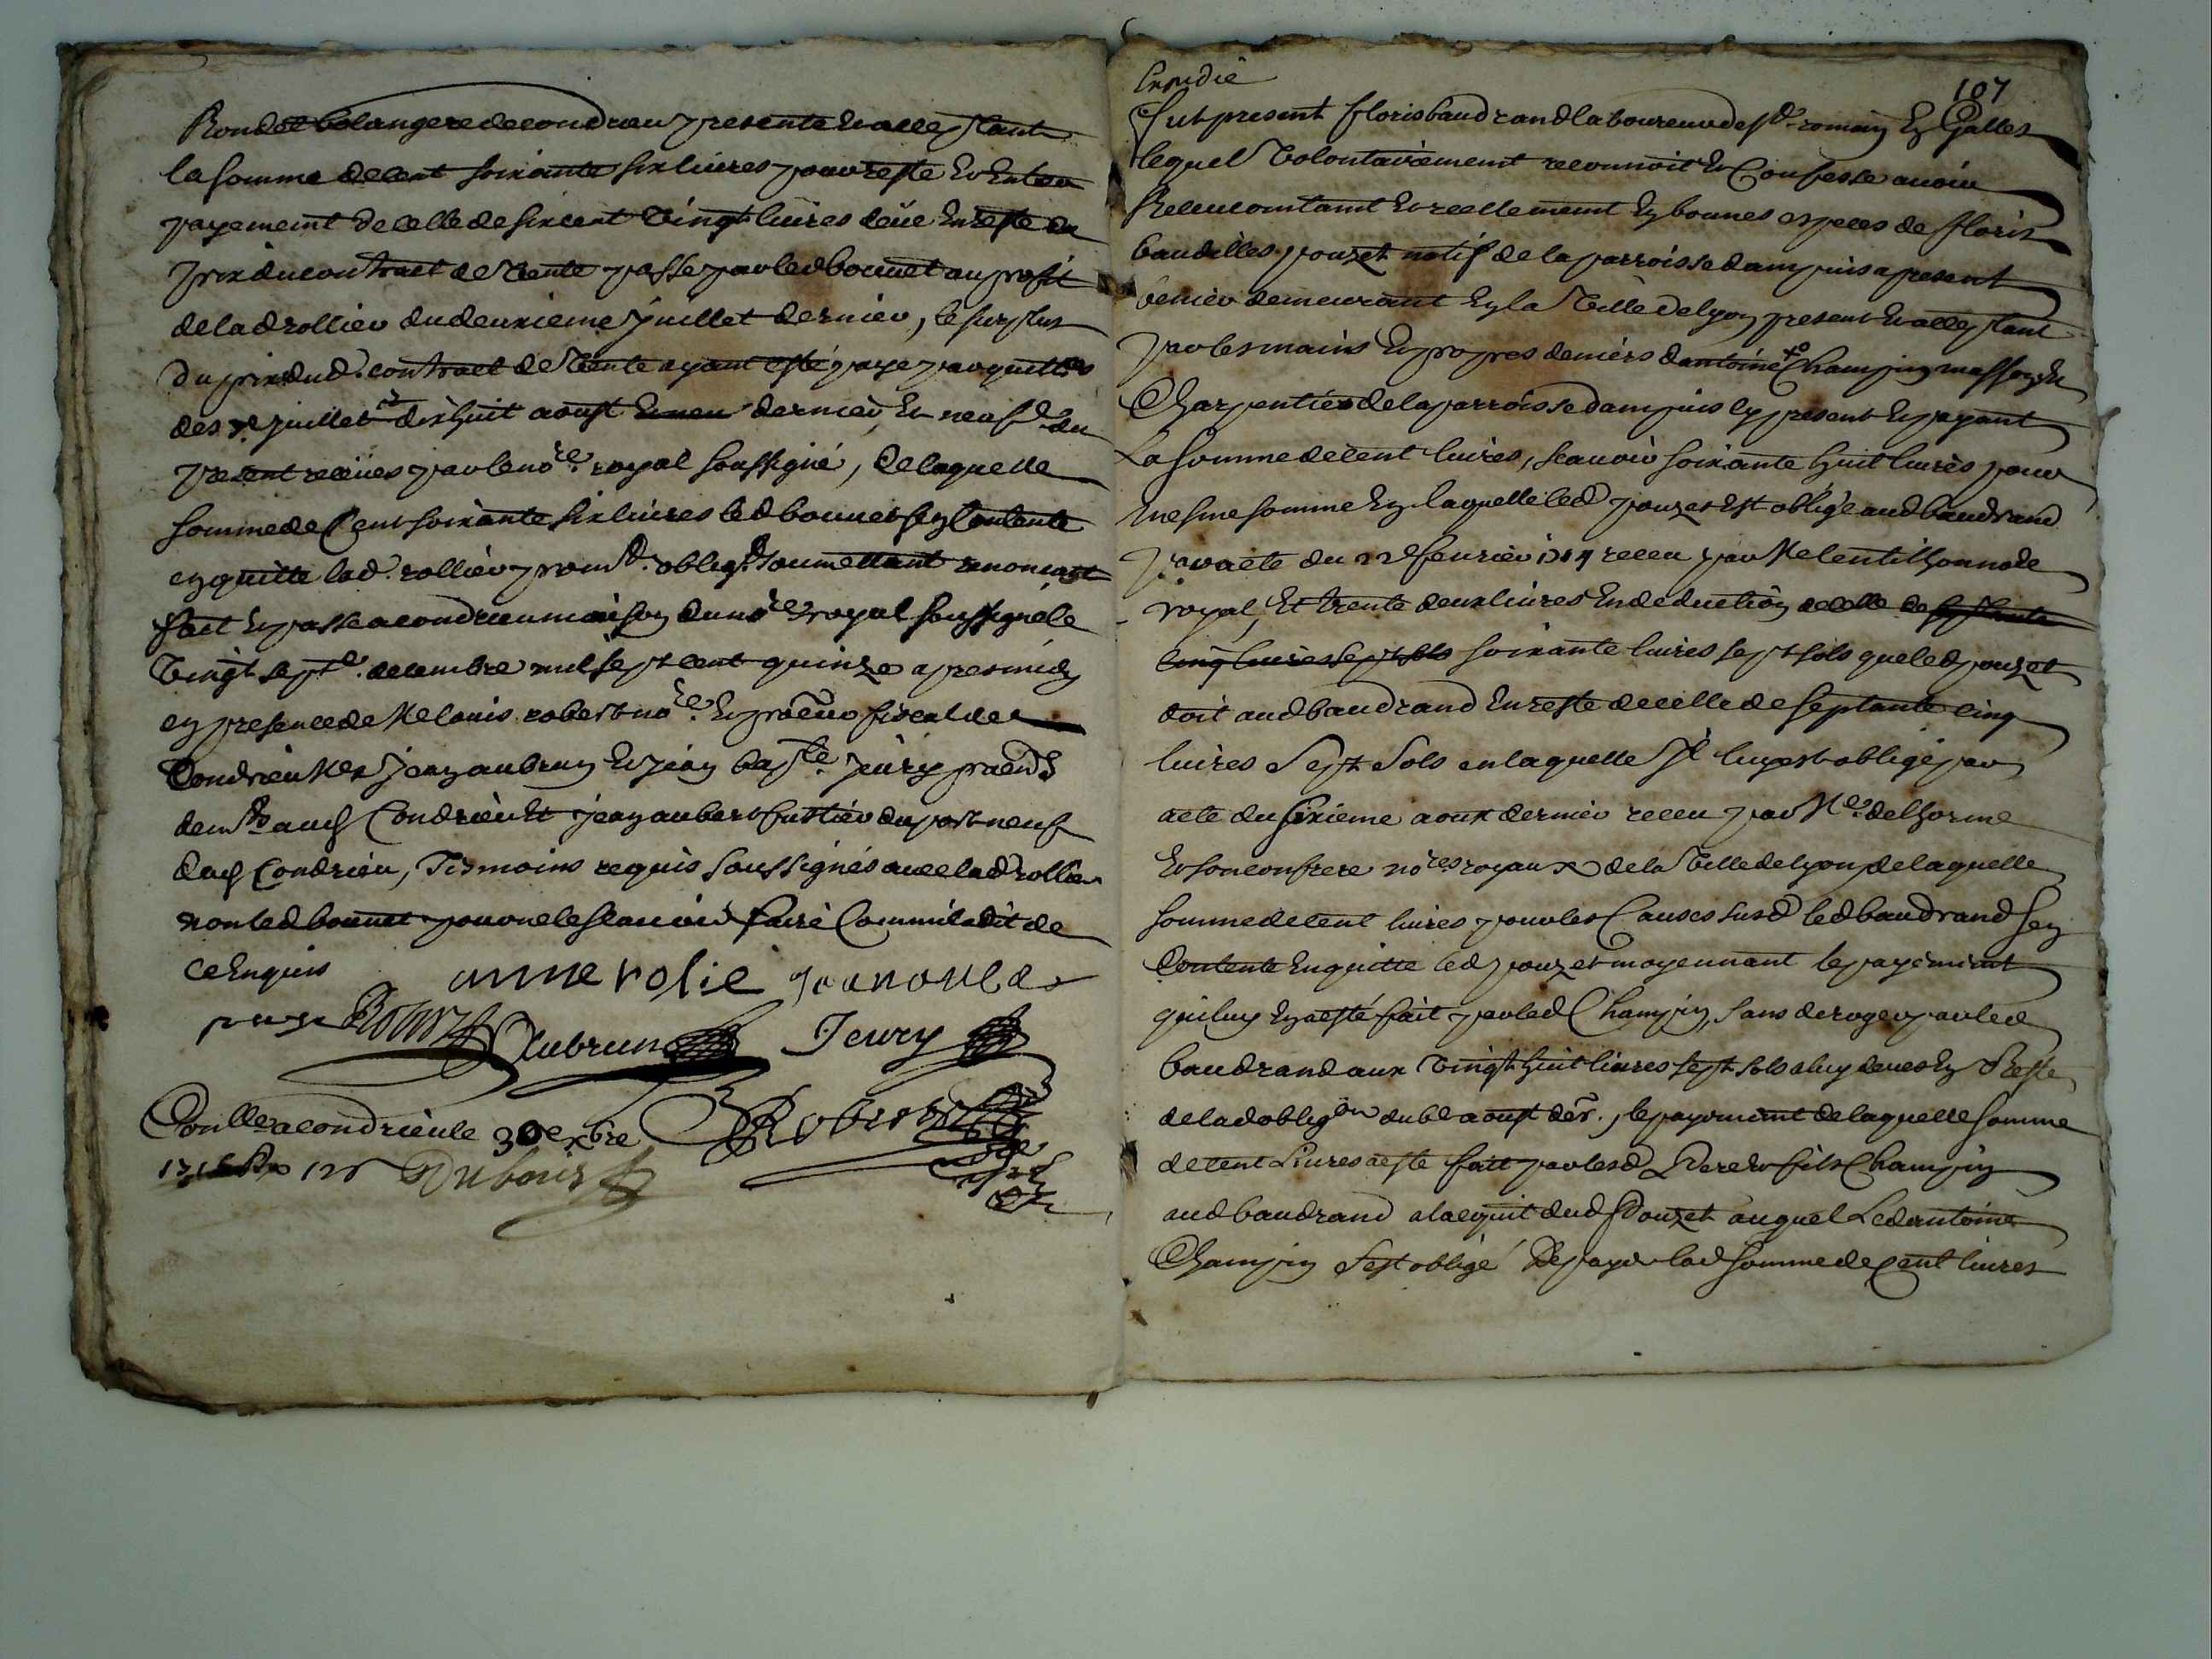 Rondet bolangere de condrieu presente et acceptant
la somme de cent soixante six livres pour reste et entier
payement de celle de six cent vingt livres deüe en reste du
prix du contract de vente passé par led bonnet au profit
de lad rollier du deuxieme juillet dernier, le surplus
du prix dud. contract de vente ayant esté payé par quittes
des juillet dix huit aoust dernier, et neuf du
present receües par le no.re royal soussigné, de laquelle
somme de Cent soixante six livres led bonnet sen contente
en quitte lad. rollier prom.t oblig.t soumettant renoncant
fait et passe a condrieu maison du no.re royal soussigné le
vingt sept.e decembre mil sept cent quinze apres midy
en presence de Me louis robert no.re et procureur fiscal de
Condrieu Mes jean aubrun et jean bap.te Jeury praend
dem.ts aud Condrieu et jean aubert fustier du port neuf
dud Condrieu, Tesmoins requis soussignés avec lad rollier
non led bonnet pour ne le scavoir faire Comme il a dit de
ce Enquis
anne rolie
Aubrun Jeury
Con.lle a condrieu le 30e xbre Robert
1715 Rx 12s Dubois
Expedié
107
Fut present floris baudrand laboureur de st romain En Galles
lequel volontairement reconnoit et Confesse avoir
Receu comtant et reellement En bonnes especes de floris
baudilles pouzet natif de la parroisse dampuis a present
demeurant En la ville de lyon present et acceptant
par les mains En propres deniers dantoine Champin masson et
Charpentier de la parroisse dampuis cy present et payant
La somme de cent livres, scavoir soixante huit livres pour
mesme somme En laquelle led pouzet Est obligé aud baudrand
par acte du 22e fevrier 1714 receu par Me lentilhon no.re
royal, Et trente deux livres En deduction de celle de
cinq livres sept sols soixante livres sept sols que led pouzet
doit aud baudrand En reste de celle de septante cinq
livres sept sols en laquelle il luy est obligé par
acte du sixieme aoust dernier receu par Me delhorme
Et son confrere no.res royaux de la ville de lyon, de laquelle
somme de cent livres pour les Causes susd led baudrand sen
Contente En quitte led pouzet moyennant le payement
qui luy En a esté fait par led Champin, sans deroger par led
baudrand aux vingt huit livres sept sols a luy deues En Reste
de lad oblig.on du 6e aoust der.r, le payement de laquelle somme
de cent Livres a este fait par lesd Pere et fils Champin
aud baudrand a lacquit dud Pouzet auquel Led antoine
Champin sest obligé De payer lad somme de Cent livres